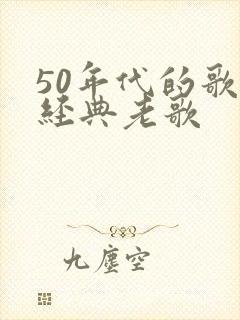 50年代的歌
經典老歌
九塵空